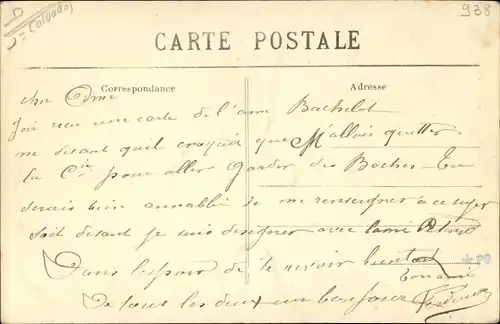 = (Calvados)
938
CARTE POSTALE
Correspondance
Adresse
cher Ami
J'ai reçu une carte de l'ami Bachelot
me disant qu'il croyait que M'allais quitter
la Cie pour aller Garder des Boches - Tu
serais bien annabli de me renseigner à ce sujet
soit disant je suis designer avec l'ami
Dans l'espoir de te revoir bientot
Ton ami
De tous les deux un